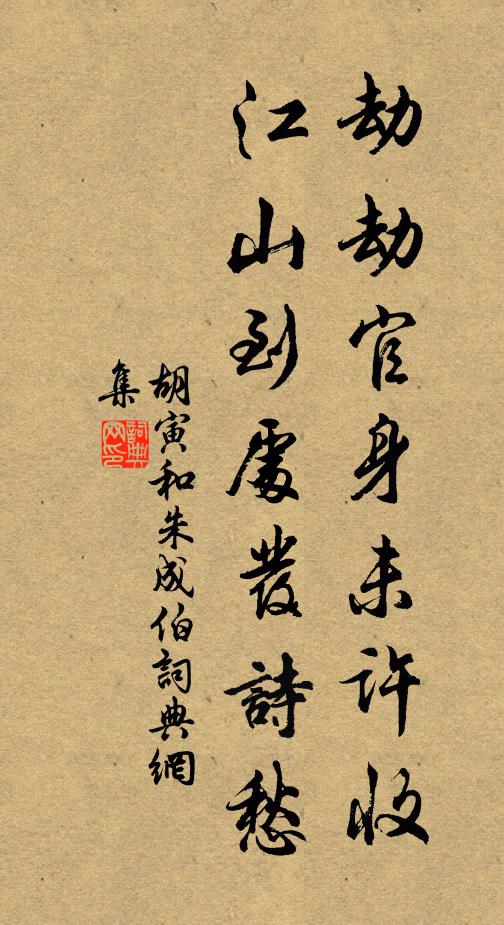 劫劫官身未許收
江山到處發詩愁
胡寅和朱成伯詞典網
集
詞典
网印